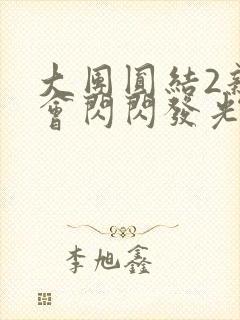 大團圓結2
會閃閃發光
李旭鑫